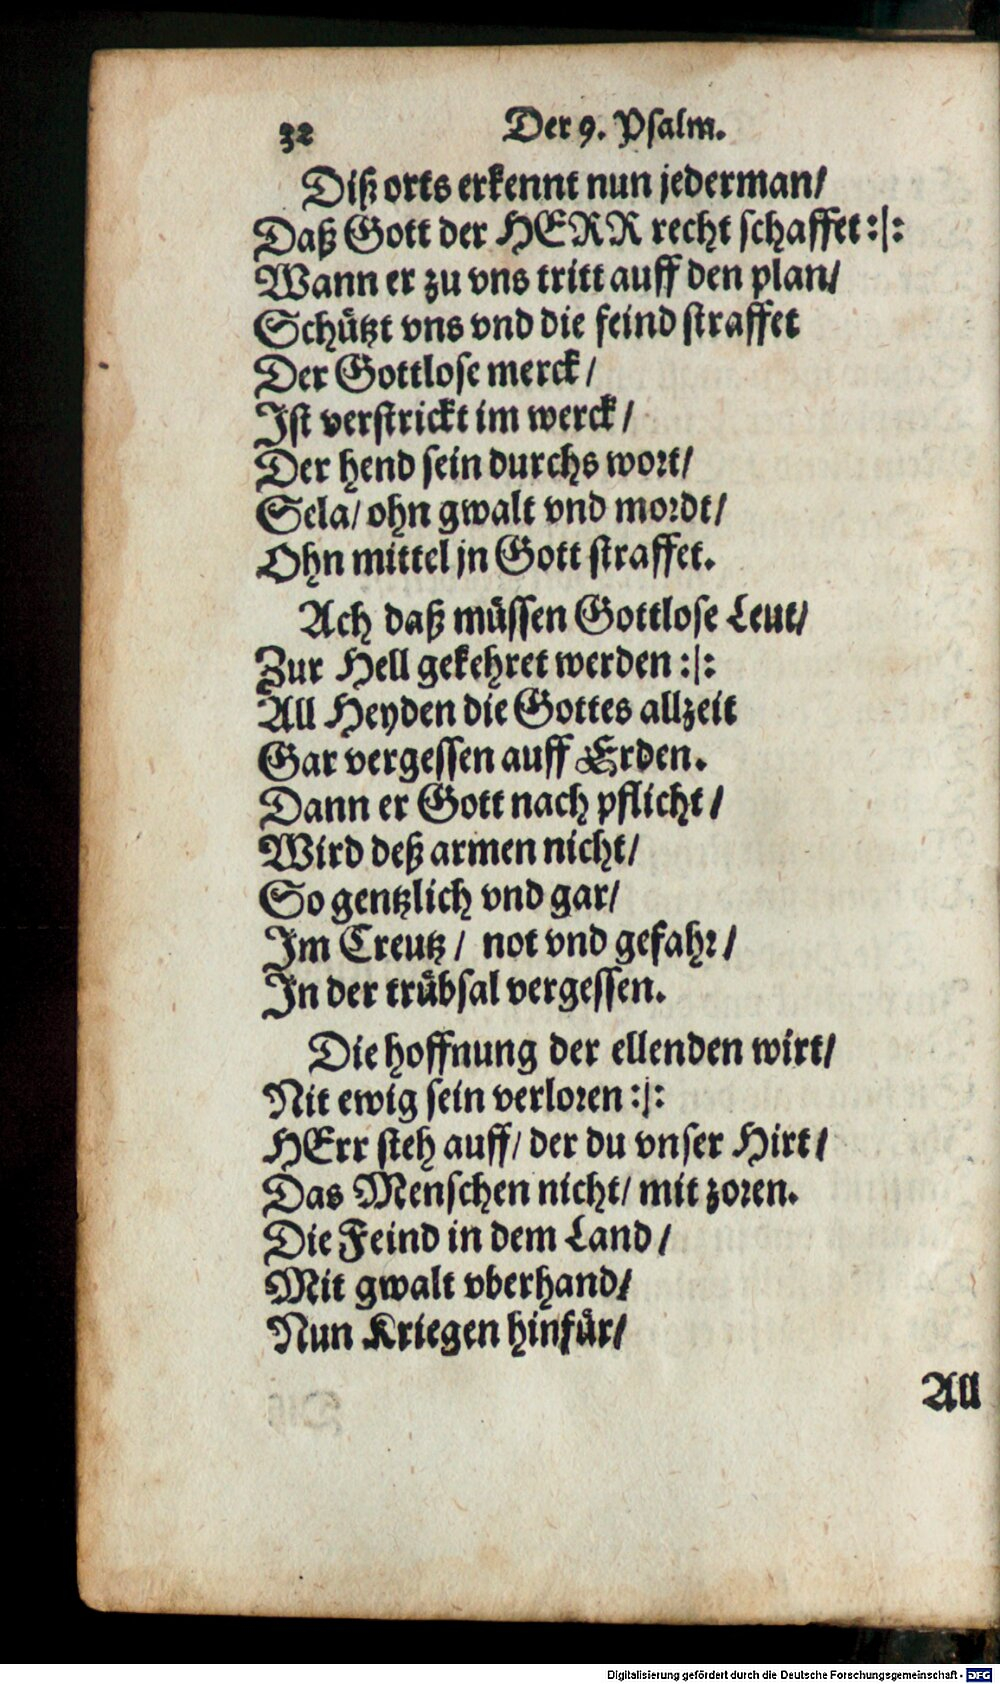 32 Der 9. Psalm.
Diß orts erkennt nun jederman/
Daß Gott der HERR recht schaffet :|:
Wann er zu vns tritt auff den plan/
Schützt vns vnd die feind straffet
Der Gottlose merck/
Ist verstrickt im werck/
Der hend sein durchs wort/
Sela/ ohn gwalt vnd mordt/
Ohn mittel jn Gott straffet.
Ach daß müssen Gottlose Leut/
Zur Hell gekehret werden :|:
All Heyden die Gottes allzeit
Gar vergessen auff Erden.
Dann er Gott nach pflicht/
Wird deß armen nicht/
So gentzlich vnd gar/
Im Creutz/ not vnd gefahr/
In der trübsal vergessen.
Die hoffnung der ellenden wirt/
Nit ewig sein verloren :|:
HErr steh auff/ der du vnser Hirt/
Das Menschen nicht/ mit zoren.
Die Feind in dem Land/
Mit gwalt vberhand/
Nun Kriegen hinfür/
All
Digitalisierung gefördert durch die Deutsche Forschungsgemeinschaft - DFG